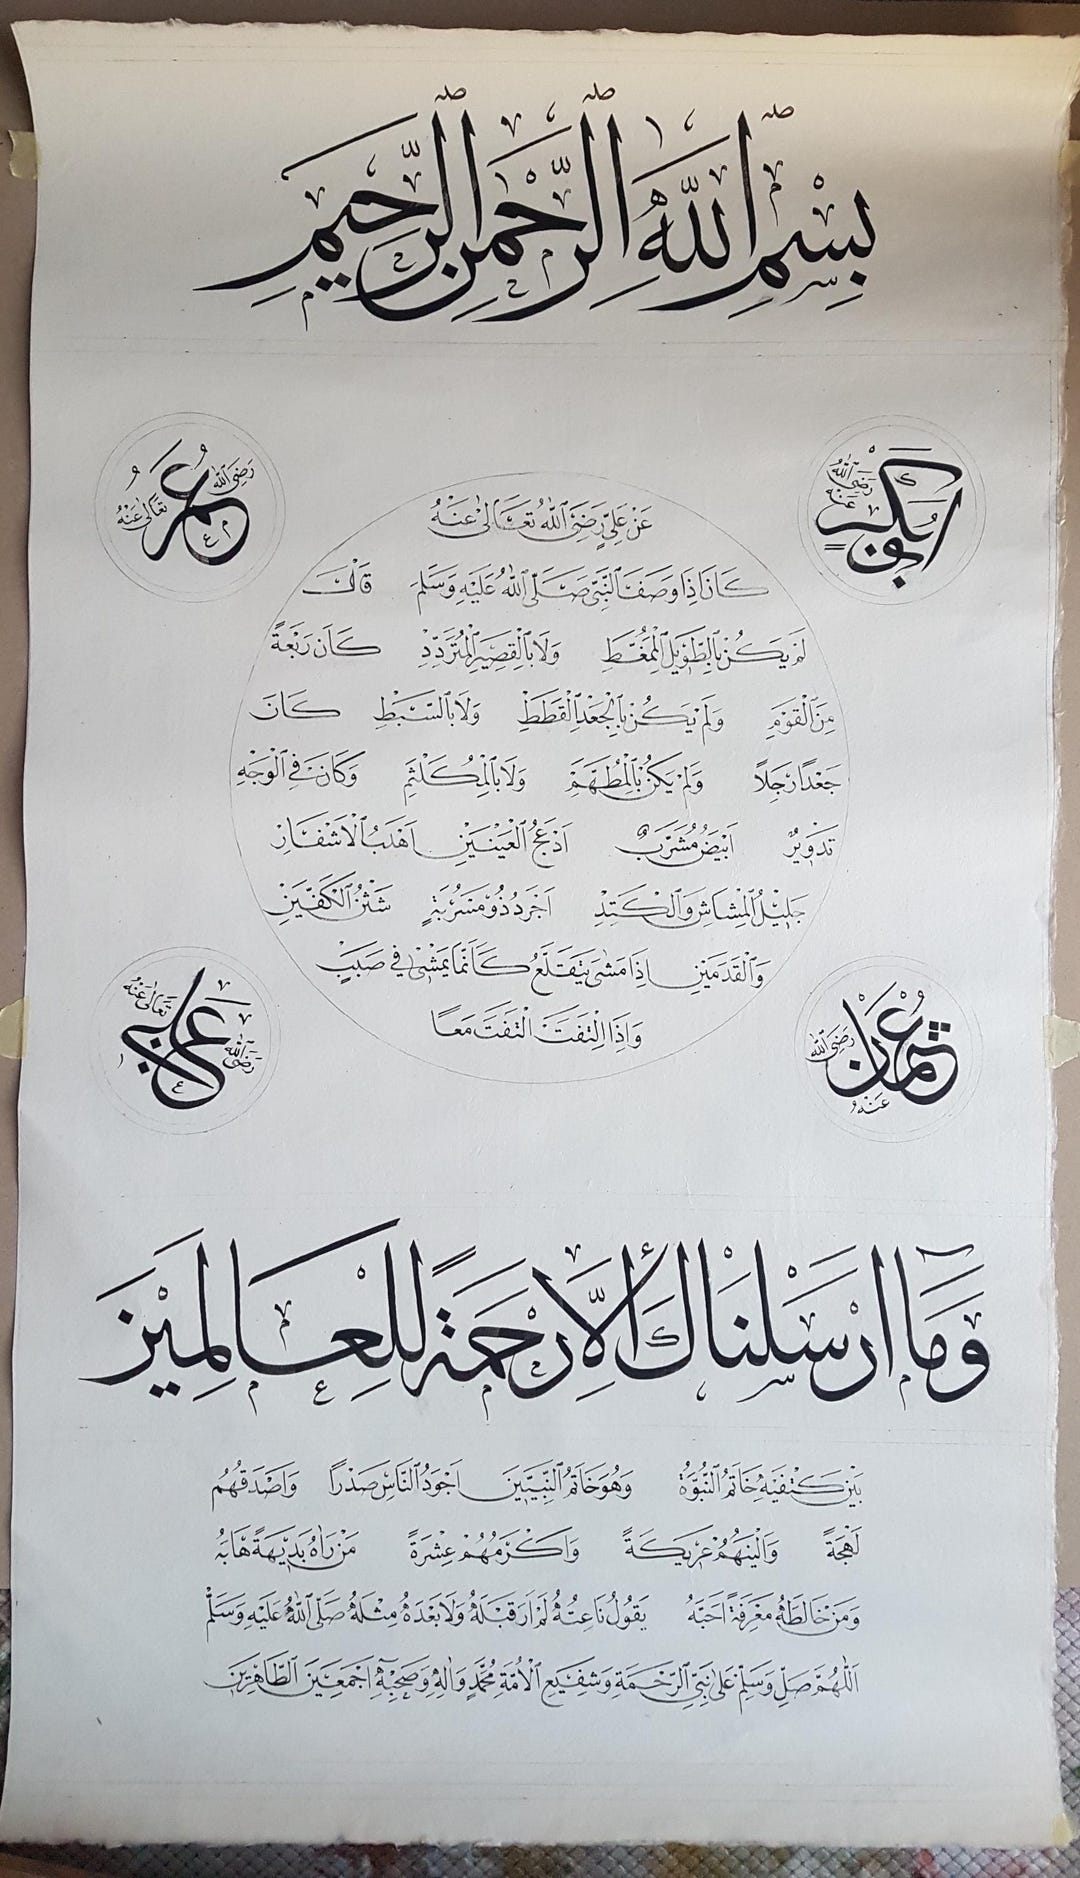 بِسْمِ ٱللّٰهِ ٱلرَّحْمٰنِ ٱلرَّحِيمِ
ابو بكر رضي الله عنه
عمر رضي الله تعالى عنه
عَنْ عَلِيٍّ رَضِيَ ٱللّٰهُ تَعَالىٰ عَنْهُ
كَانَ اِذَا وَصَفَ ٱلنَّبِيَّ صَلَّى ٱللّٰهُ عَلَيْهِ وَسَلَّمَ قَالَ
لَمْ يَكُنْ بِالطَّوِيلِ ٱلْمُمَّغِطِ وَلَا بِالْقَصِيرِ ٱلْمُتَرَدِّدِ كَانَ رَبْعَةً
مِنَ ٱلْقَوْمِ وَلَمْ يَكُنْ بِالْجَعْدِ ٱلْقَطَطِ وَلَا بِالسَّبْطِ كَانَ
جَعْدًا رَجِلًا وَلَمْ يَكُنْ بِالْمُطَهَّمِ وَلَا بِالْمُكَلْثَمِ وَكَانَ فِي ٱلْوَجْهِ
تَدْوِيرٌ اَبْيَضُ مُشْرَبٌ اَدْعَجُ ٱلْعَيْنَيْنِ اَهْدَبُ ٱلْاَشْفَارِ
جَلِيلُ ٱلْمُشَاشِ وَٱلْكَتِدِ اَجْرَدُ ذُو مَسْرُبَةٍ شَثْنُ ٱلْكَفَّيْنِ
وَٱلْقَدَمَيْنِ اِذَا مَشٰى يَتَقَلَّعُ كَاَنَّمَا يَمْشِي فِي صَبَبٍ
وَاِذَا ٱلْتَفَتَ ٱلْتَفَتَ مَعًا
عثمان رضي الله عنه
علي رضي الله تعالى عنه
وَمَا أَرْسَلْنَاكَ اِلَّا رَحْمَةً لِلْعَالَمِينَ
بَيْنَ كَتِفَيْهِ خَاتَمُ ٱلنُّبُوَّةِ وَهُوَ خَاتَمُ ٱلنَّبِيِّينَ اَجْوَدُ ٱلنَّاسِ صَدْرًا وَاَصْدَقُهُمْ
لَهْجَةً وَاَلْيَنُهُمْ عَرِيكَةً وَاَكْرَمُهُمْ عِشْرَةً مَنْ رَاٰهُ بَدِيهَةً هَابَهُ
وَمَنْ خَالَطَهُ مَعْرِفَةً اَحَبَّهُ يَقُولُ نَاعِتُهُ لَمْ اَرَ قَبْلَهُ وَلَا بَعْدَهُ مِثْلَهُ صَلَّى ٱللّٰهُ عَلَيْهِ وَسَلَّمَ
اَللّٰهُمَّ صَلِّ وَسَلِّمْ عَلٰى نَبِيِّ ٱلرَّحْمَةِ وَشَفِيعِ ٱلْاُمَّةِ مُحَمَّدٍ وَاٰلِهِ وَصَحْبِهِ اَجْمَعِينَ ٱلطَّاهِرِينَ